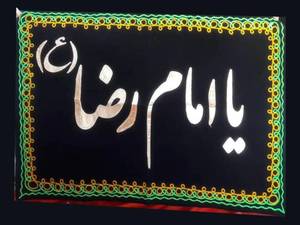 یا امام رضا (ع)